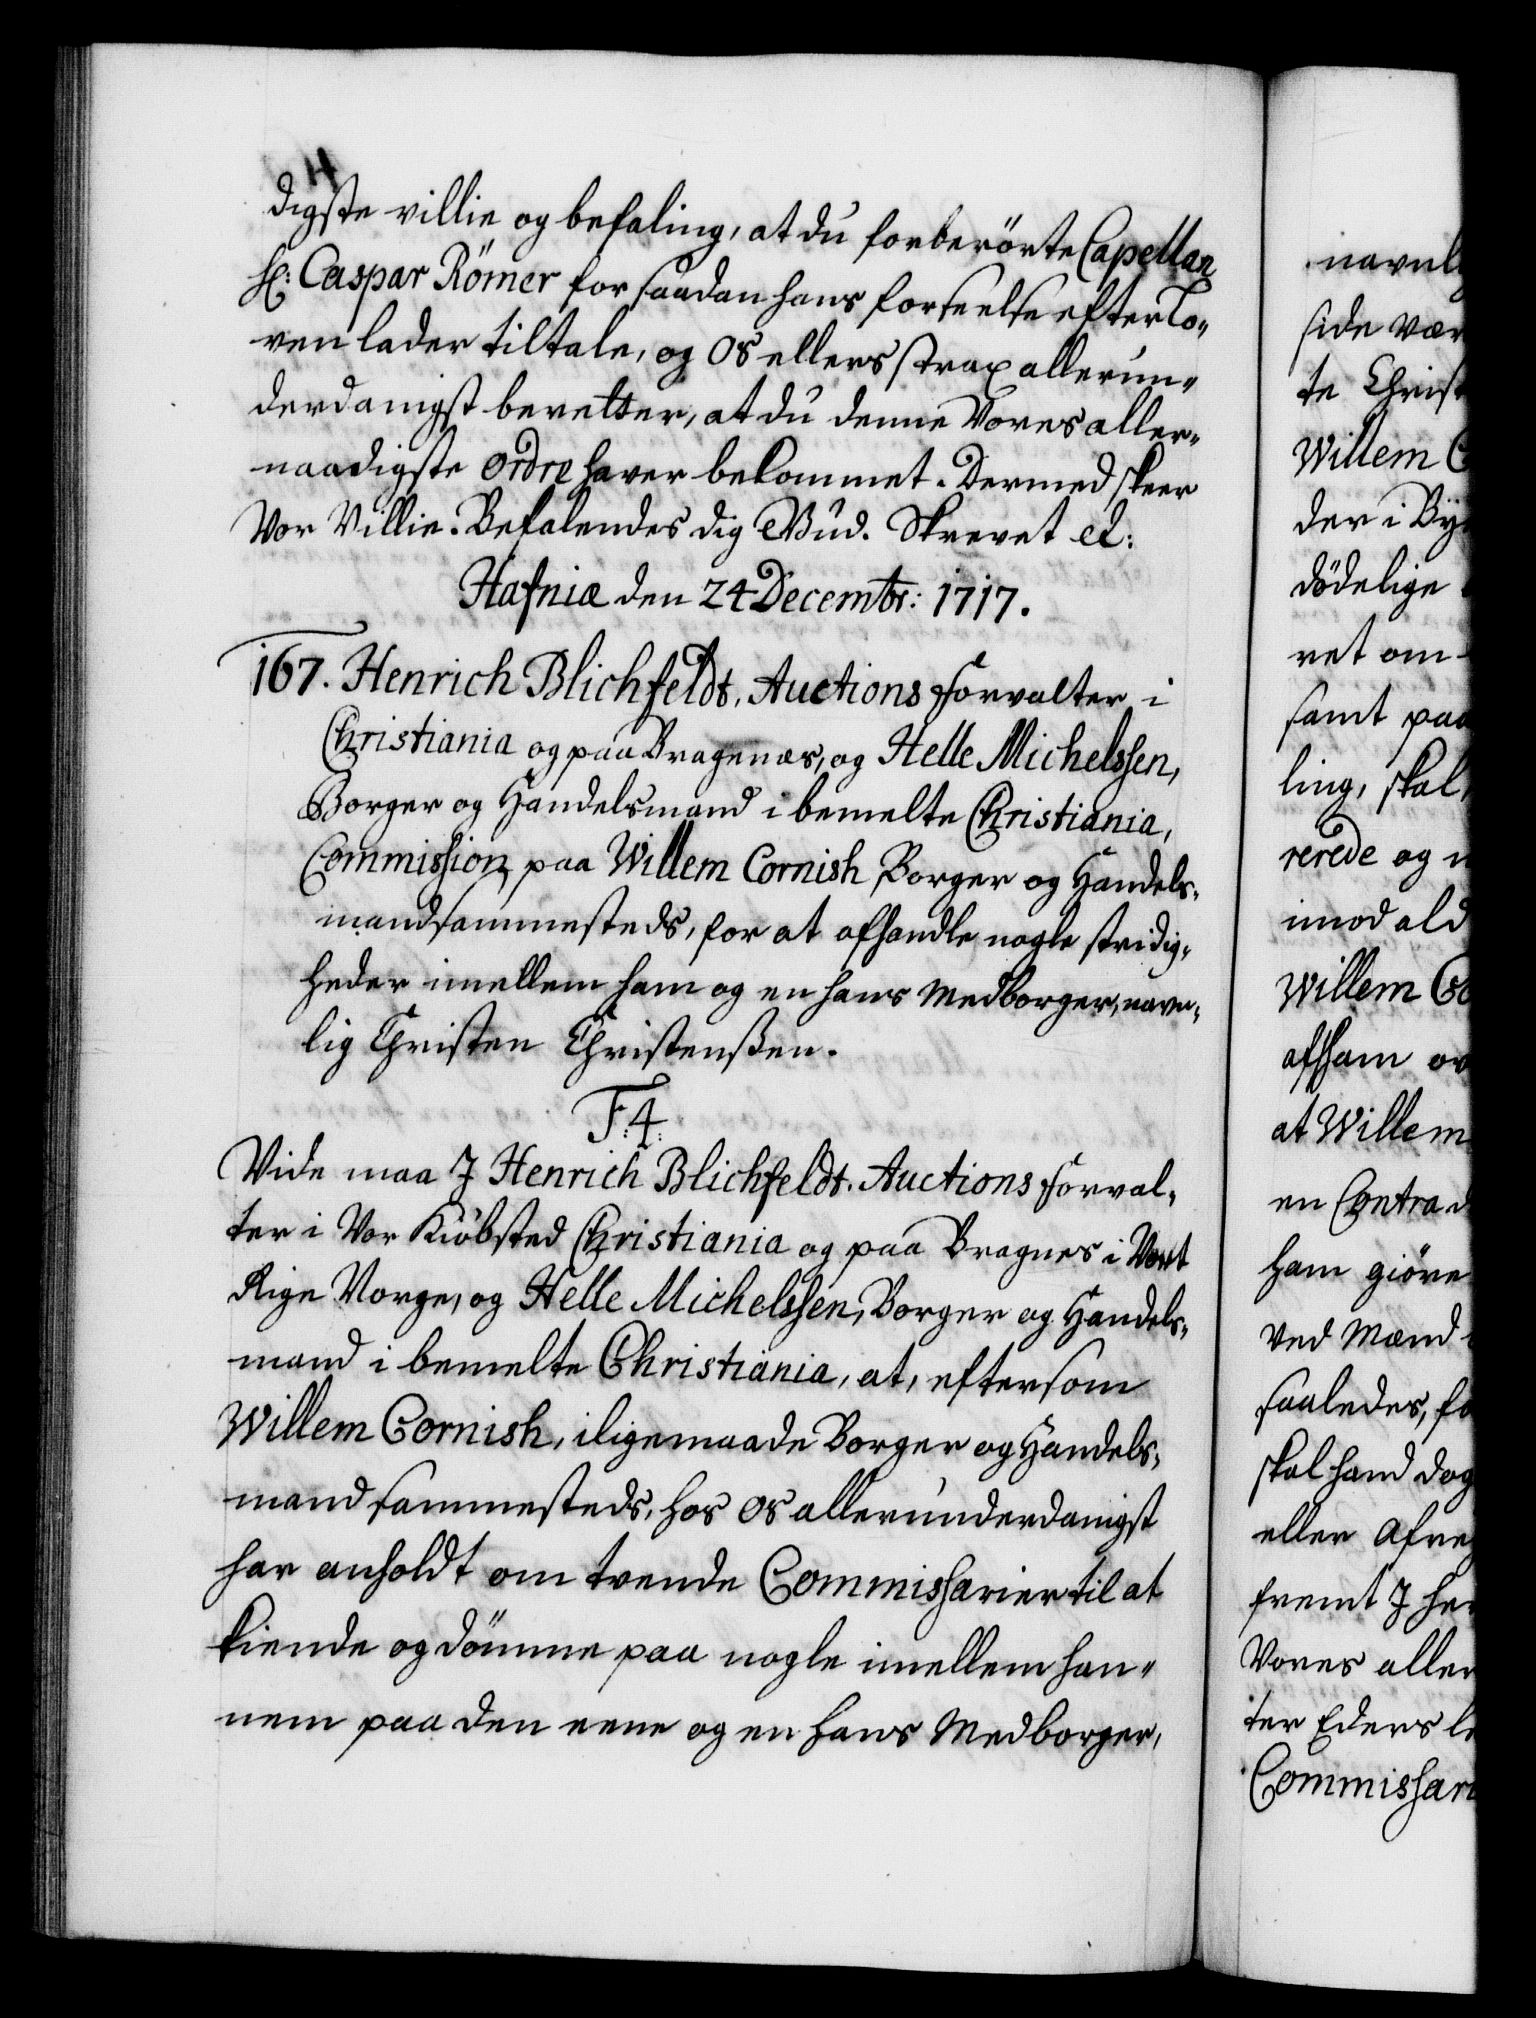 digste villie og befaling, at du forberörte Capellan
Hr: Caspar Römer for saadan hans forseelse efter Lo-
ven lader tiltale, og Os ellers strax allerun-
derdanigst beretter, at du denne Vores aller-
naadigste Ordre haver bekommet. Dermed skeer
Vor Villie. Befalendes dig Gud. Skrevet etc:
Hafniæ den 24 Decembr: 1717.
167. Henrich Blichfeldt, Auctions Forvalter i
Christiania og paa Bragenæs, og Helle Michelssen,
Borger og Handelsmand i bemelte Christiania,
Commission paa Willem Cornish Borger og Handels-
mand sammesteds, for at afhandle nogle stridig-
heder imellem ham og en hans Medborger, navn-
lig Christen Christenßen.
F:4:
Vide maa J Henrich Blichfeldt, Auctions Forval-
ter i Vor Kiöbsted Christiania og paa Bragnes i Vort
Rige Norge, og Helle Michelssen, Borger og Handels-
mand i bemelte Christiania, at, eftersom
Willem Cornish, iligemaade Borger og Handels-
mand sammesteds, hos Os allerunderdanigst
har anholdt om tvende Commissarier til at
kiende og dömme paa nogle imellem han-
nem paa den eene og en hans Medborger,
navnl
side vær
te Christ
Willem C
der i By
dödelige
ret om
samt paa
ling, skal
rerede og
imod ald
Willem Co
afham ov
at Willem
en Contra d
ham giöre
ved Mænd
saaledes, fo
skal hand dog
eller Afre
fremt J her
Vores aller
ter Eders le
Commissari